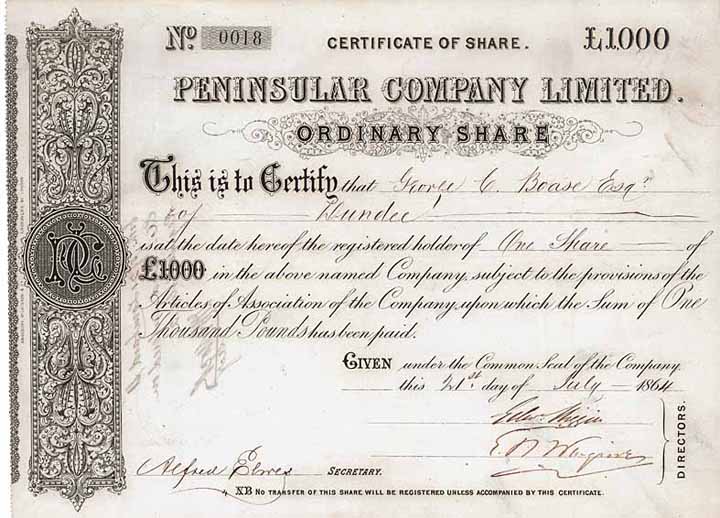 No 0018 CERTIFICATE OF SHARE. £1000
PENINSULAR COMPANY LIMITED.
ORDINARY SHARE
This is to Certify that George C. Boase Esqr
of Dundee
is at the date hereof the registered holder of One Share of
£1000 in the above named Company, subject to the provisions of the
Articles of Association of the Company, upon which the Sum of One
Thousand Pounds has been paid.
GIVEN under the Common Seal of the Company
this 21st day of July 1864
DIRECTORS.
Alfred Elwes SECRETARY.
NB No TRANSFER OF THIS SHARE WILL BE REGISTERED UNLESS ACCOMPANIED BY THIS CERTIFICATE.